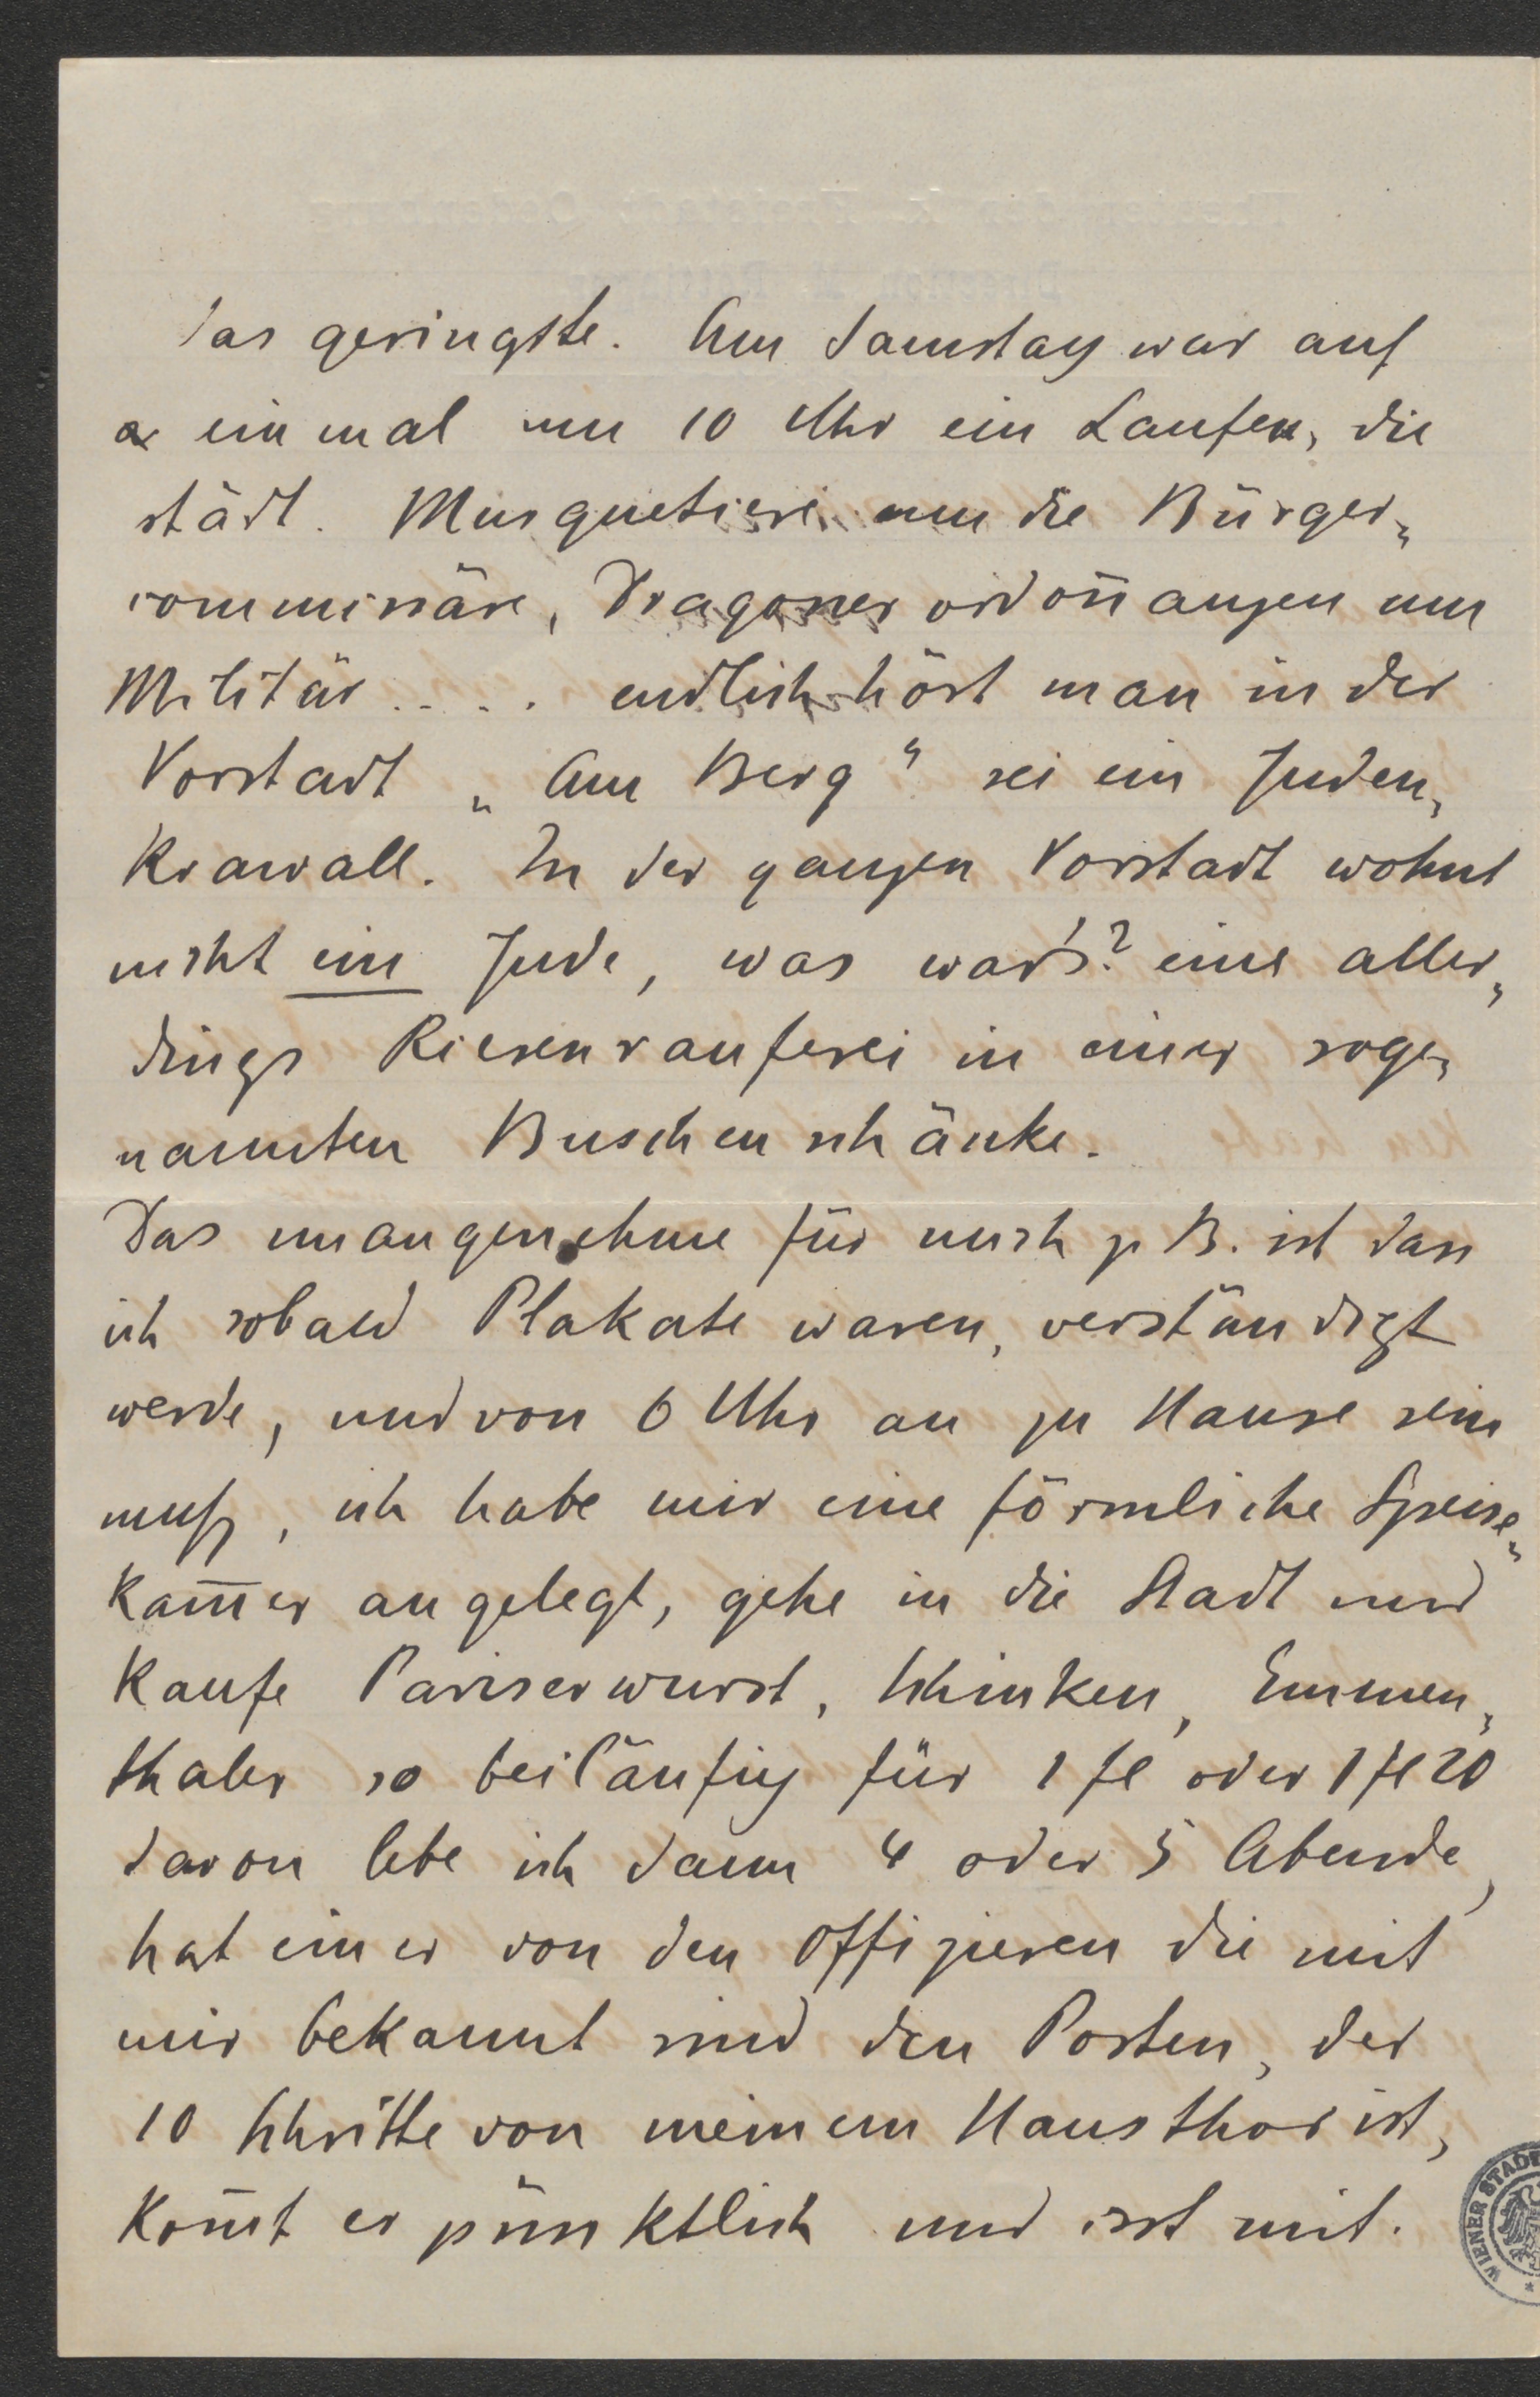 das geringste. Am Samstag war auf
a einmal um 10 Uhr ein Laufen, die
städt. Musquetiere um die Bürger„
commissäre, Dragoner ordoñanzen um
Militär .... endlich hört man in der
Vorstadt „Am Berg“ sei ein Juden„
Krawall. In der ganzen Vorstadt wohnt
nicht ein Jude, was war's? eine aller„
dings Riesenrauferei in einer soge„
nannten Buschenschänke.
Das unangenehme für mich z B. ist dass
ich sobald Plakate waren, verständigt
werde, und von 6 Uhr an zu Hause sein
muß, ich habe mir eine förmliche Speise„
kam̅er angelegt, gehe in die Stadt und
Kaufe Pariserwurst, Schinken, Emmen„
thaler so beiläufig für 1 fl oder 1 fl 20
davon lebe ich dann 4 oder 5 Abende,
hat einer von den Offizieren die mit
mir bekannt sind den Posten, der
10 Schritte von meinem Hausthor ist,
kom̅t er pünktlich und isst mit.
WIENER STADT